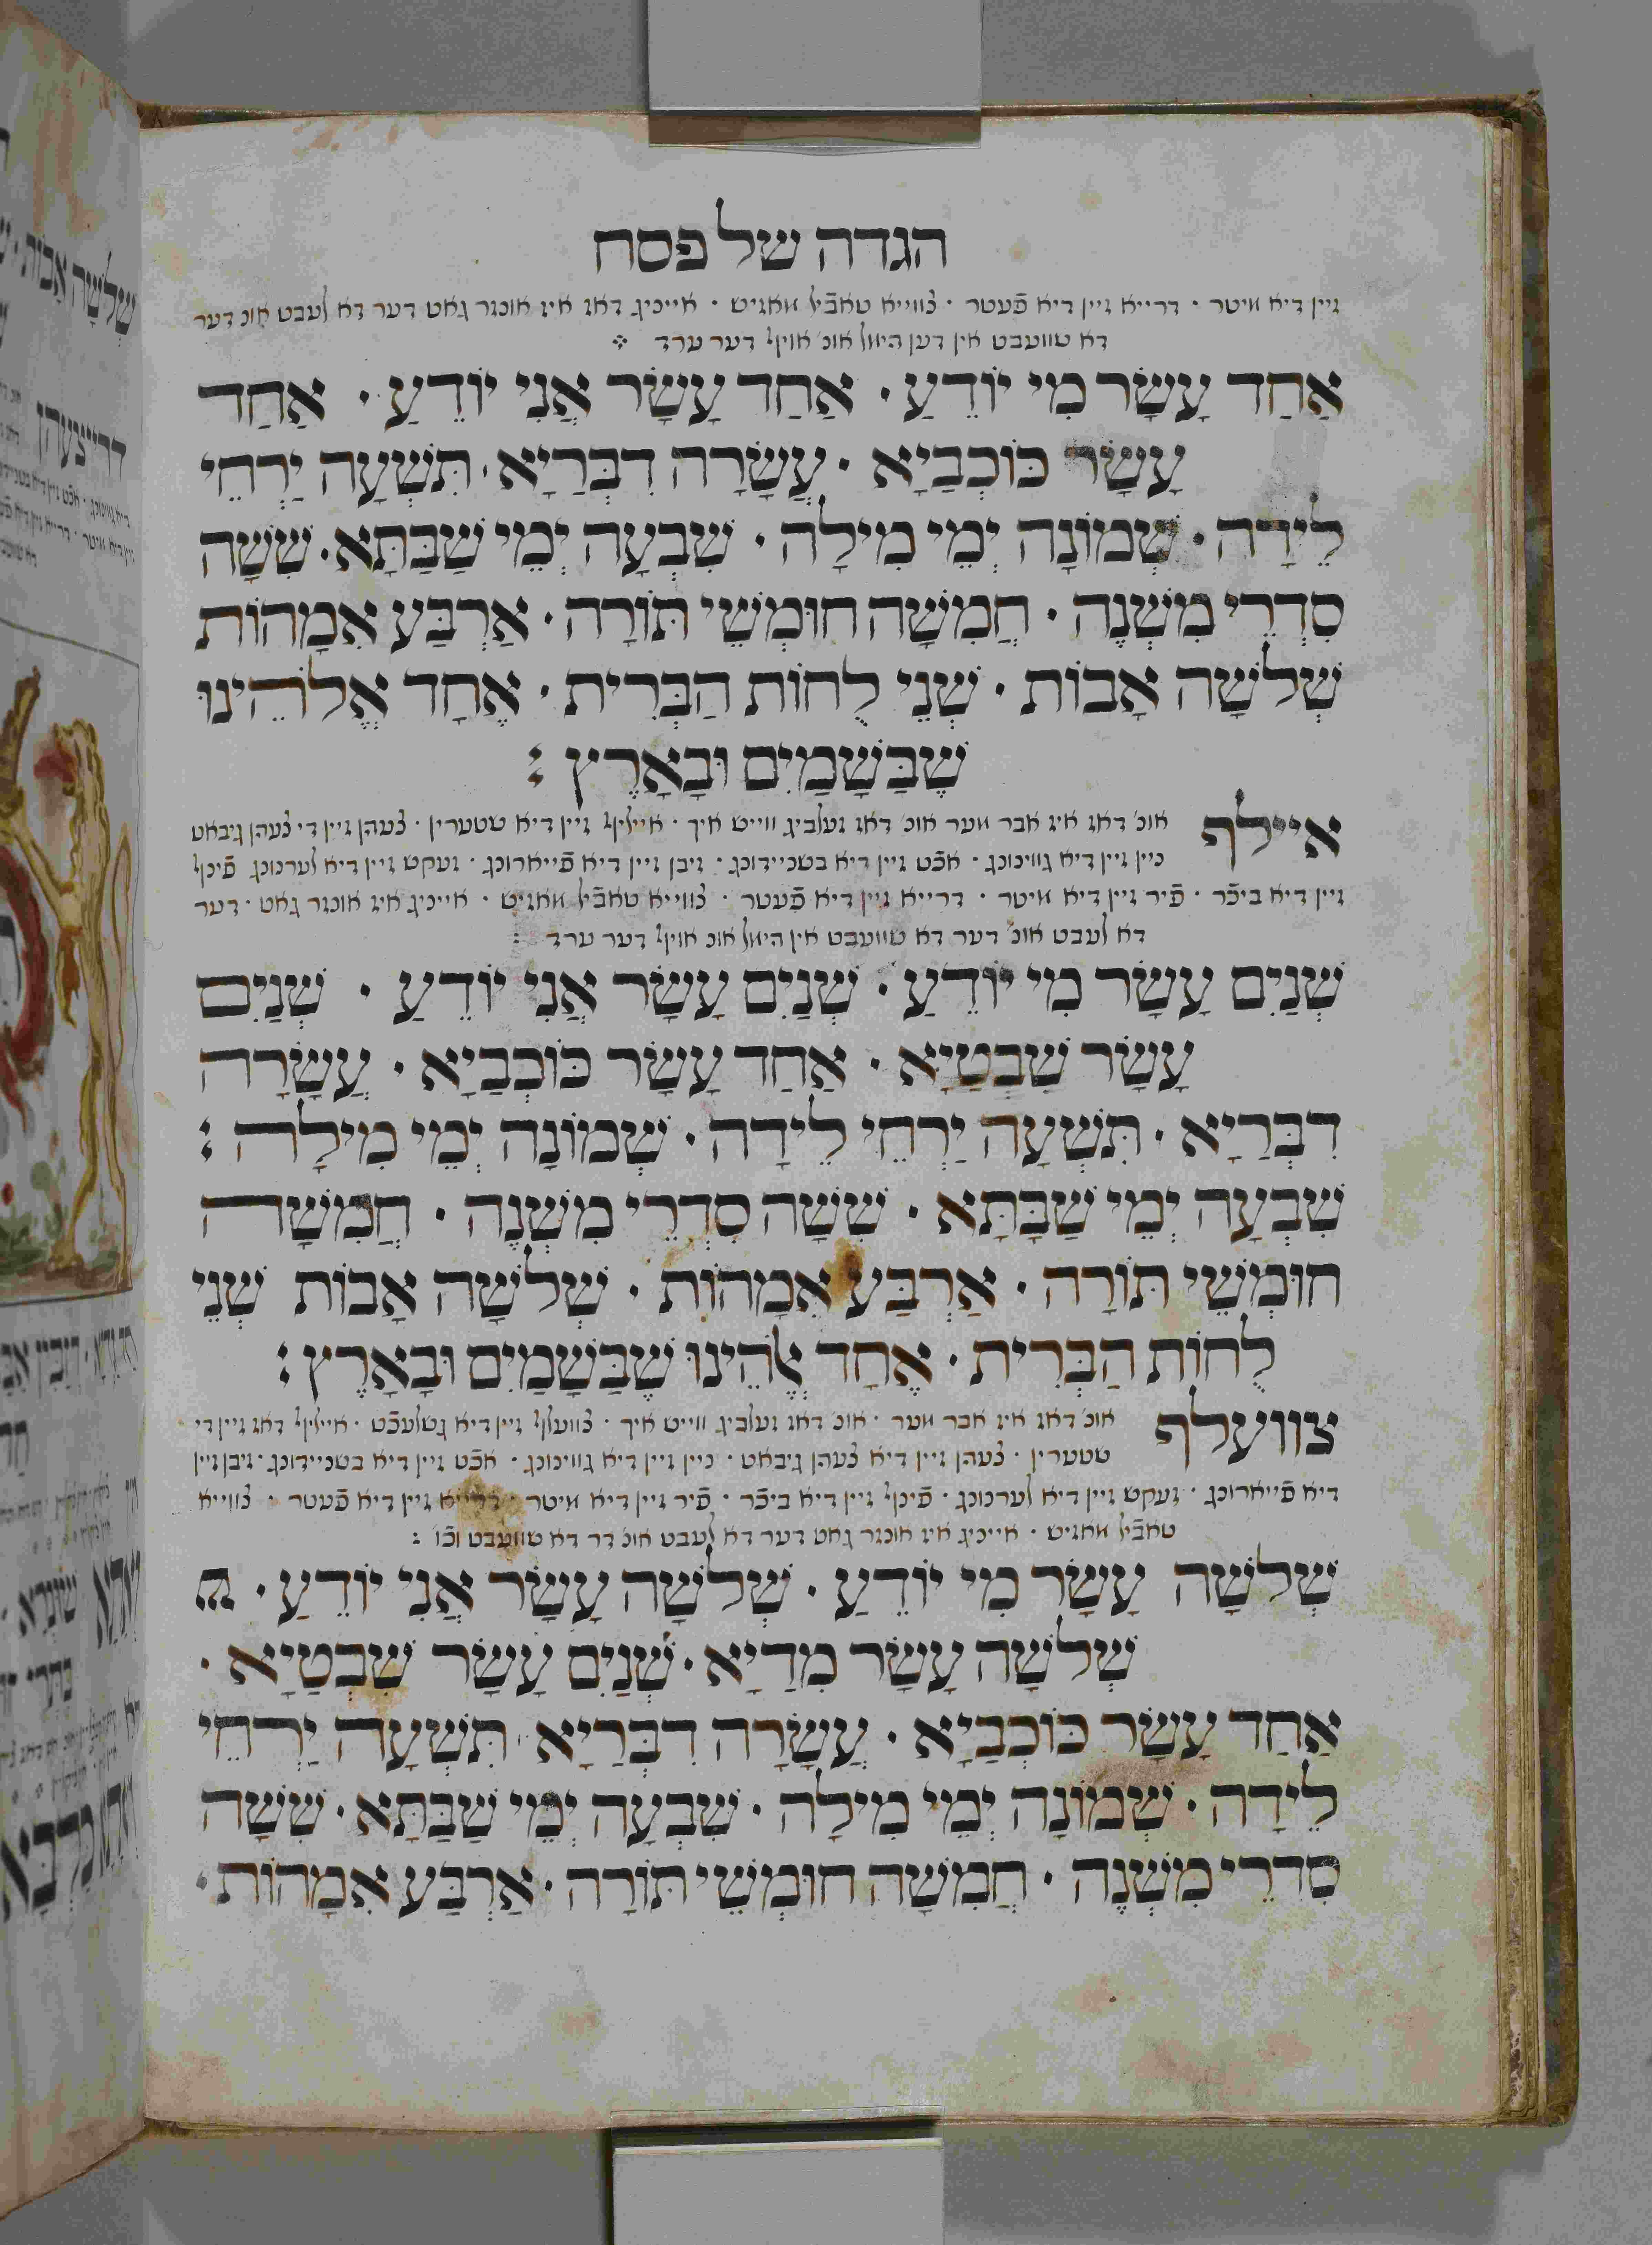 הגדה של פסח
זיין דיא מיטר · דרייא זיין דיא פֿעטר · צווייא טאבֿיל מאזיש · אייניג דאז איז אונזר גאט דער דא לעבט אונ דער
דא שוועבט אין דען הימל אונ׳ אויף דער ערד
אַחַד עָשָׂר מִי יוֹדֵעַ · אַחַד עָשָׂר אֲנִי יוֹדֵעַ · אַחַד
עָשָׂר כּוֹכְבַיָא · עֲשָׂרָה דִבְּרַיָא · תִּשְׁעָה יַרְחֵי
לֵידָה · שְׁמוֹנָה יְמֵי מִילָה · שִׁבְעָה יְמֵי שַׁבַּתָּא · שִׁשָּׁה
סִדְרֵי מִשְׁנֶה · חֲמִשָּׁה חוּמְשֵׁי תּוֹרָה · אַרְבַּע אִמָהוֹת
שְׁלשָׁה אָבוֹת · שְׁנֵי לֻחוֹת הַבְּרִית · אֶחָד אֱלֹהֵינוּ
שֶׁבַּשָּׁמַיִם וּבָאָרֶץ :
איילף אונ׳ דאז איז אבר מער אונ׳ דאז זעלביג ווייש איך · איילף זיין דיא שטערין · צעהן זיין די צעהן גיבאט
ניין זיין דיא גווינונג · אכֿט זיין דיא בשניידונג · זיבן זיין דיא פֿייארונג · זעקש זיין דיא לערנונג פֿינף
זיין דיא ביכֿר · פֿיר זיין דיא מיטר · דרייא זיין דיא פֿעטר · צווייא טאבֿיל מאזיש · אייניג איז אונזר גאט · דער
דא לעבט אונ׳ דער דא שוועבט אין הימל אונ אויף דער ערד :
שְׁנַיִם עָשָׂר מִי יוֹדֵעַ · שְׁנַיִם עָשָׂר אֲנִי יוֹדֵעַ · שְׁנַיִם
עָשָׂר שִׁבְטַיָא · אַחַד עָשָׂר כּוֹכְבַיָא · עֲשָׂרָה
דִבְּרַיָא · תִּשְׁעָה יַרְחֵי לֵידָה · שְׁמוֹנָה יְמֵי מִילָה :
שִׁבְעָה יְמֵי שַׁבַּתָּא · שִׁשָּׁה סִדְרֵי מִשְׁנֶה · חֲמִשָּׁה
חוּמְשֵׁי תּוֹרָה · אַרְבַּע אִמָהוֹת · שְׁלשָׁה אָבוֹת שְׁנֵי
לֻחוֹת הַבְּרִית · אֶחָד אֱלֹהֵינוּ שֶׁבַּשָּׁמַיִם וּבָאָרֶץ :
צוועלף אונ׳ דאז איז אבר מער · אונ׳ דאז זעלביג ווייש איך · צוועלף זיין דיא גשלעכֿט · איילף דאז זיין די
שטערין · צעהן זיין דיא צעהן גיבאט · ניין זיין דיא גווינונג · אכֿט זיין דיא בשניידונג · זיבן זיין
דיא פֿייארונג · זעקש זיין דיא לערנונג · פֿינף זיין דיא ביכֿר · פֿיר זיין דיא מיטר · דרייא זיין דיא פֿעטר · צווייא
טאבֿיל מאזיש · אייניג איז אונזר גאט דער דא לעבט אונ׳ דר דא שוועבט וכֿו׳ :
שְׁלשָׁה עָשָׂר מִי יוֹדֵעַ · שְׁלשָׁה עָשָׂר אֲנִי יוֹדֵעַ ·
שְׁלשָׁה עָשָׂר מִדַיָא · שְׁנַיִם עָשָׂר שִׁבְטַיָא ·
אַחַד עָשָׂר כּוֹכְבַיָא · עֲשָׂרָה דִבְּרַיָא תִּשְׁעָה יַרְחֵי
לֵידָה · שְׁמוֹנָה יְמֵי מִילָה · שִׁבְעָה יְמֵי שַׁבַּתָּא · שִׁשָּׁה
סִדְרֵי מִשְׁנֶה · חֲמִשָּׁה חוּמְשֵׁי תּוֹרָה · אַרְבַּע אִמָהוֹת ·